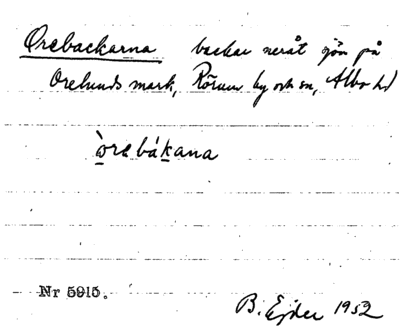 Orebackarna backar neråt sjön på
Orelunds mark, Rörum by och sn, Albo hd
òrebákana
Nr 5915.
B. Ejder 1952